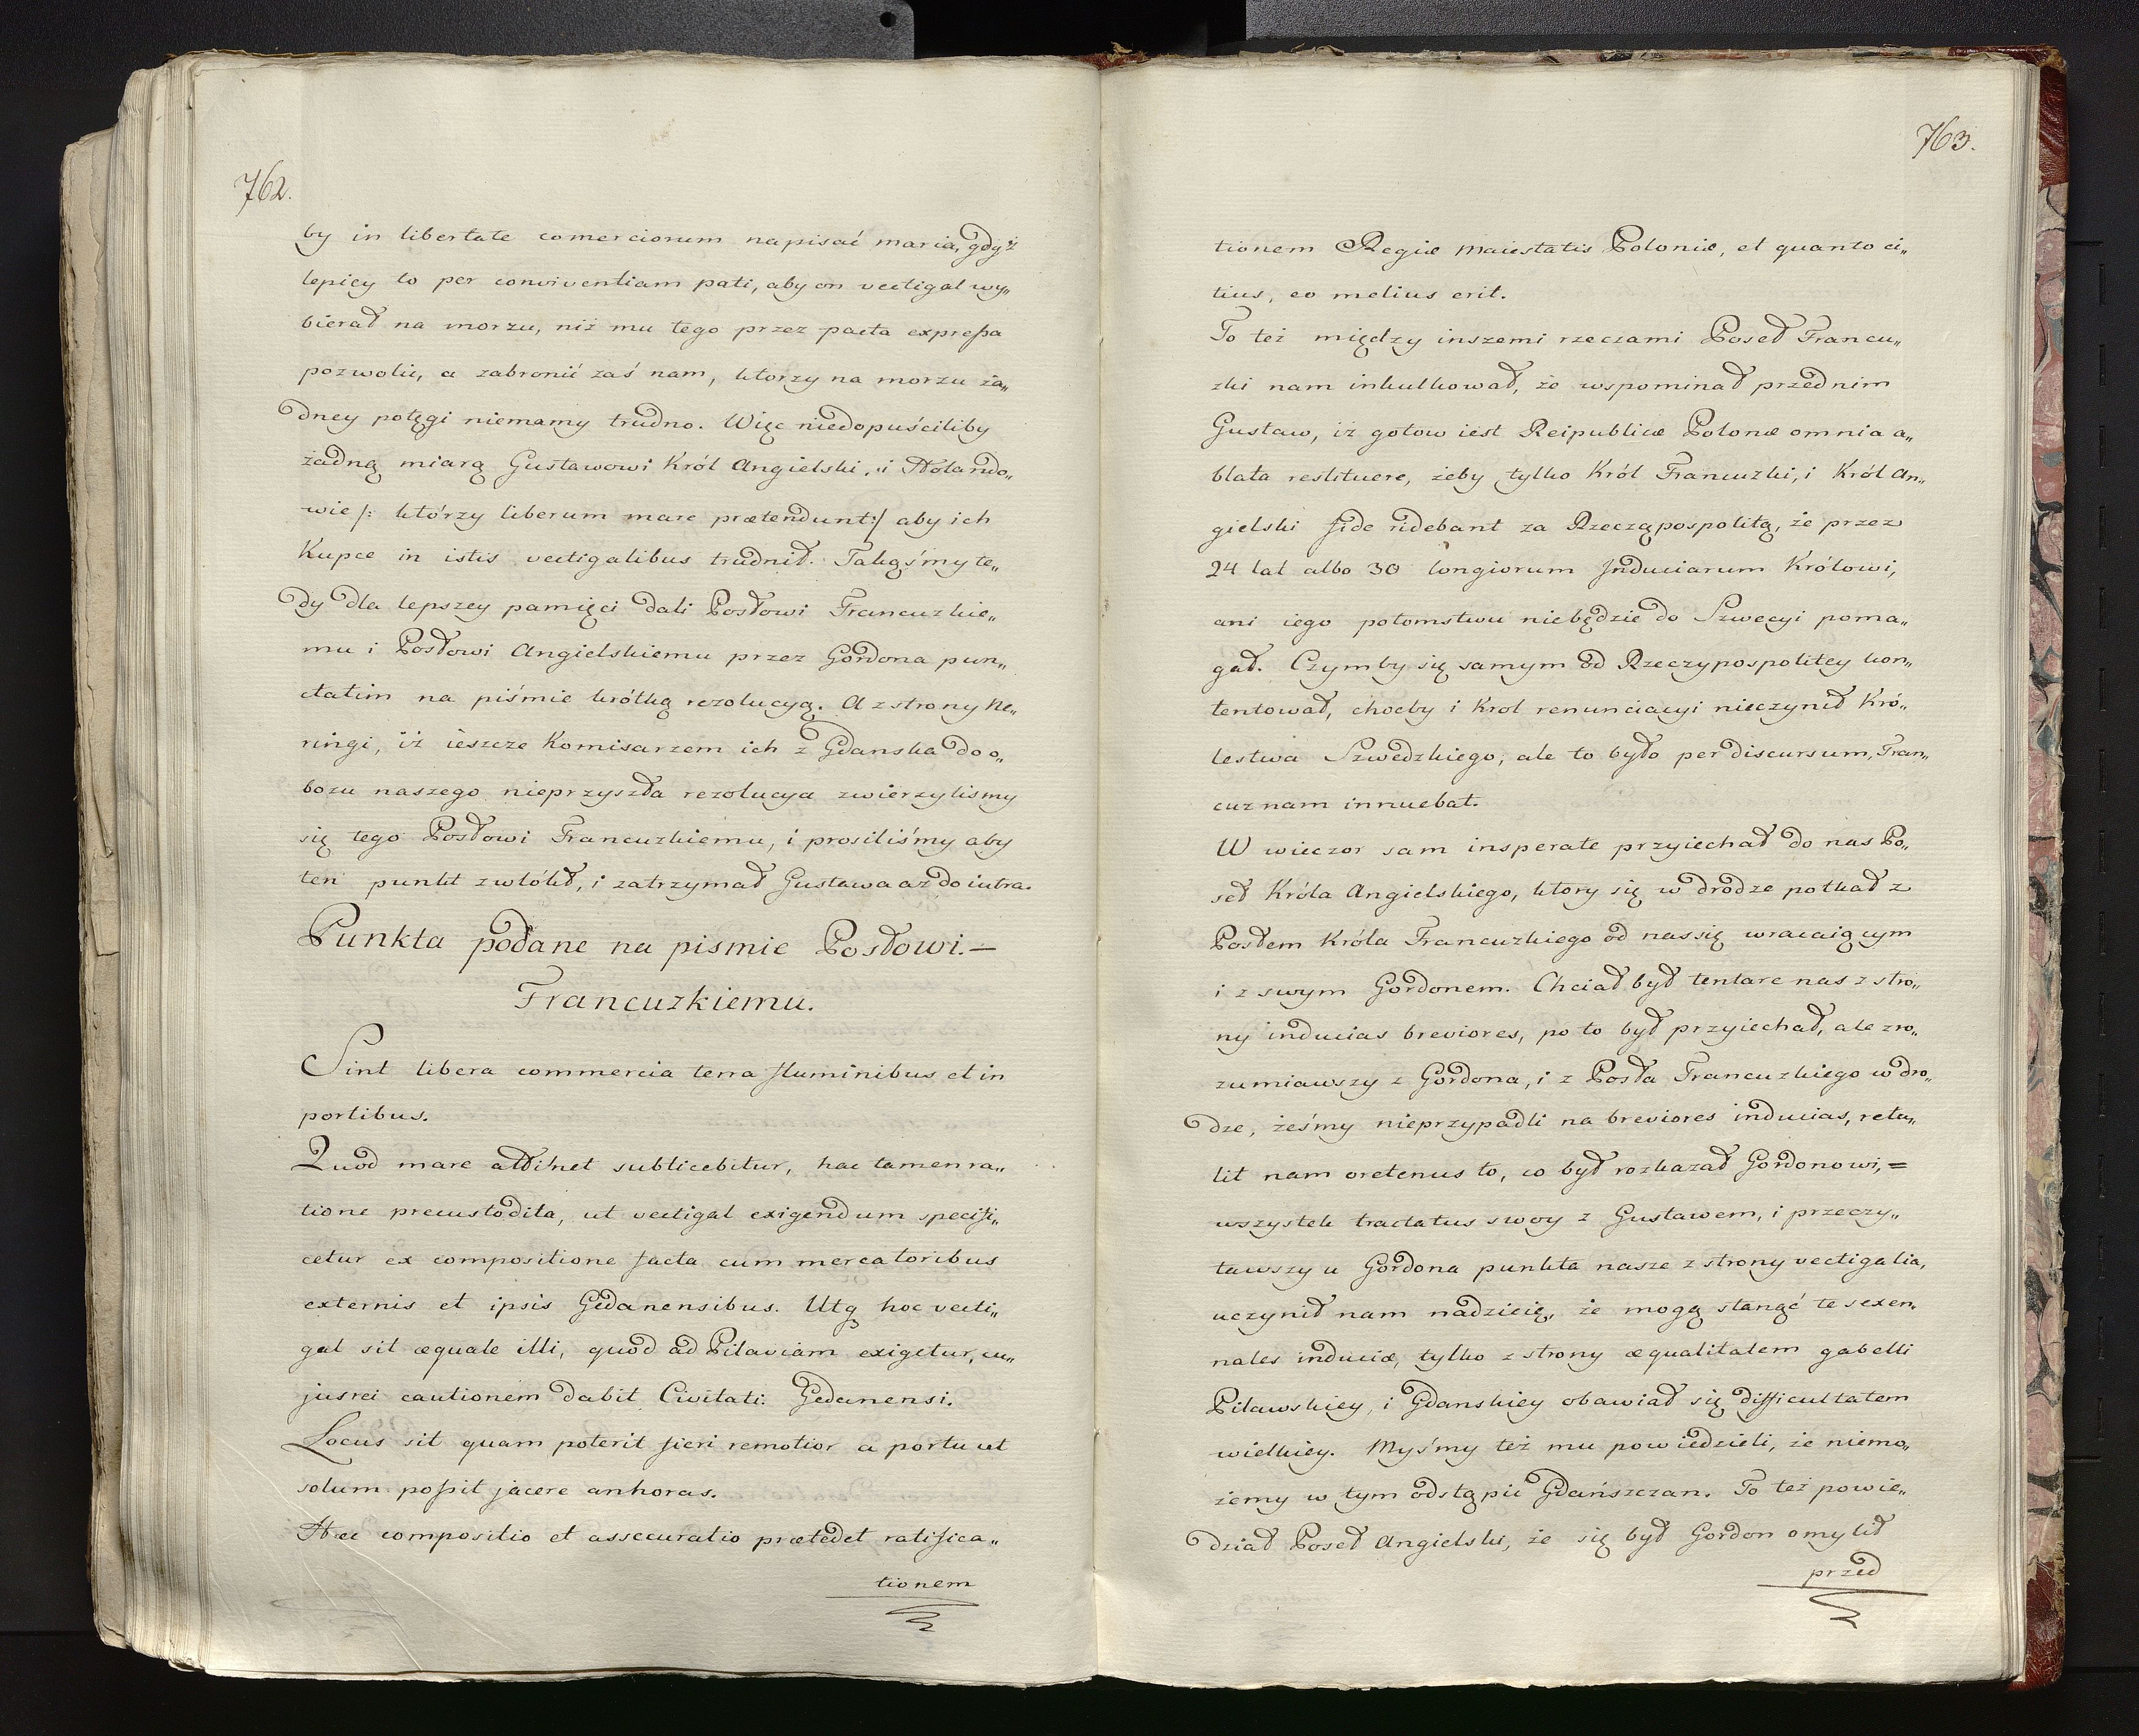 762.
by in libertate comerciorum napisać maria, gdyż
lepiey to per conviventiam pati, aby on vectigal wy„
bierał na morzu, niż mu tego przez pacta expreſsa
pozwolić, a zabronić zaś nam, ktorzy na morzu ża„
dney potęgi niemamy trudno. Więc niedopuściliby
żadną miarą Gustawowi Król Angielski, i Holando„
wie /: którzy liberum mare prætendunt :/ aby ich
Kupce in istis vectigalibus trudnił. Takąśmy te„
dy dla lepszey pamięci dali Posłowi Francuzkie„
mu i Posłowi Angielskiemu przez Gordona pun„
ctatim na piśmie krótką rezolucyą. A z strony Ne„
ringi, iż ieszcze Komisarzem ich z Gdanska do o„
bozu naszego nieprzyszła rezolucya zwierzylismy
się tego Posłowi Francuzkiemu, i prosiliśmy aby
ten punkt zwlókł, i zatrzymał Gustawa aż do iutra.
Punkta podane na pismie Posłowi.—
Francuzkiemu.
Sint libera commercia terra fluminibus et in
portibus.
Quod mare attinet sublicebitur, hac tamen ra„
tione precustodita, ut vectigal exigendum specifi„
cetur ex compositione facta cum mercatoribus
externis et ipsis Gedanensibus. Utq hoc vecti„
gal sit æquale illi, quod ad Pilaviam exigetur, cu„
jus rei cautionem dabit Civitati Gedanensi.
Locus sit quam poterit fieri remotior a portu ut
solum poſsit jacere anhoras.
Hæc compositio et assecuratio prætedet ratifica„
tionem
763.
tionem Regiæ Maiestatis Poloniæ, et quanto ci„
tius, eo melius erit.
To też między inszemi rzeczami Poseł Francu„
zki nam inkulkował, że wspominał przed nim
Gustaw, iż gotow iest Reipublicæ Polonæ omnia a„
blata restituere, żeby tylko Król Francuzki, i Król An„
gielski fide ridebant za Rzecząpospolitą, że przez
24 lat albo 30 longiorum Induciarum Królowi,
ani iego potomstwu niebędzie do Szwecyi poma„
gał. Czymby się samym od Rzeczypospolitey kon„
tentował, choćby i Krol renunciacyi nieczynił Kró„
lestwa Szwedzkiego, ale to było per discursum, Fran„
cuz nam innuebat.
W wieczor sam insperate przyiechał do nas Po„
seł Króla Angielskiego, ktory się w drodze potkał z
Posłem Króla Francuzkiego od nas się wracaiącym
i z swym Gordonem. Chciał był tentare nas z stro„
ny inducias breviores, po to był przyiechał, ale zro„
zumiawszy z Gordona, i z Posła Francuzkiego w dro„
dze, żeśmy nieprzypadli na breviores inducias, retu„
lit nam oretenus to, co był rozkazał Gordonowi, =
wszystek tractatus swoy z Gustawem, i przeczy„
tawszy u Gordona punkta nasze z strony vectigalia,
uczynił nam nadzieię, że mogą stanąć te sexen„
nales induciæ, tylko z strony æqualitatem gabelli
Pilawskiey, i Gdanskiey obawiał się difficultatem
wielkiey. Myśmy też mu powiedzieli, że niemo„
żemy w tym odstąpić Gdańszczan. To też powie„
dział Poseł Angielski, że się był Gordon omylił
przed